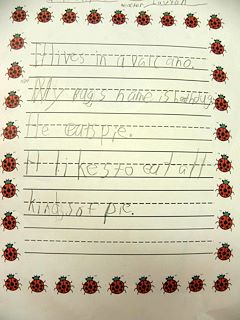 It lives in a volcano.
My bug's name is
He eats pie.
It likes to eat all
kinds of pie.